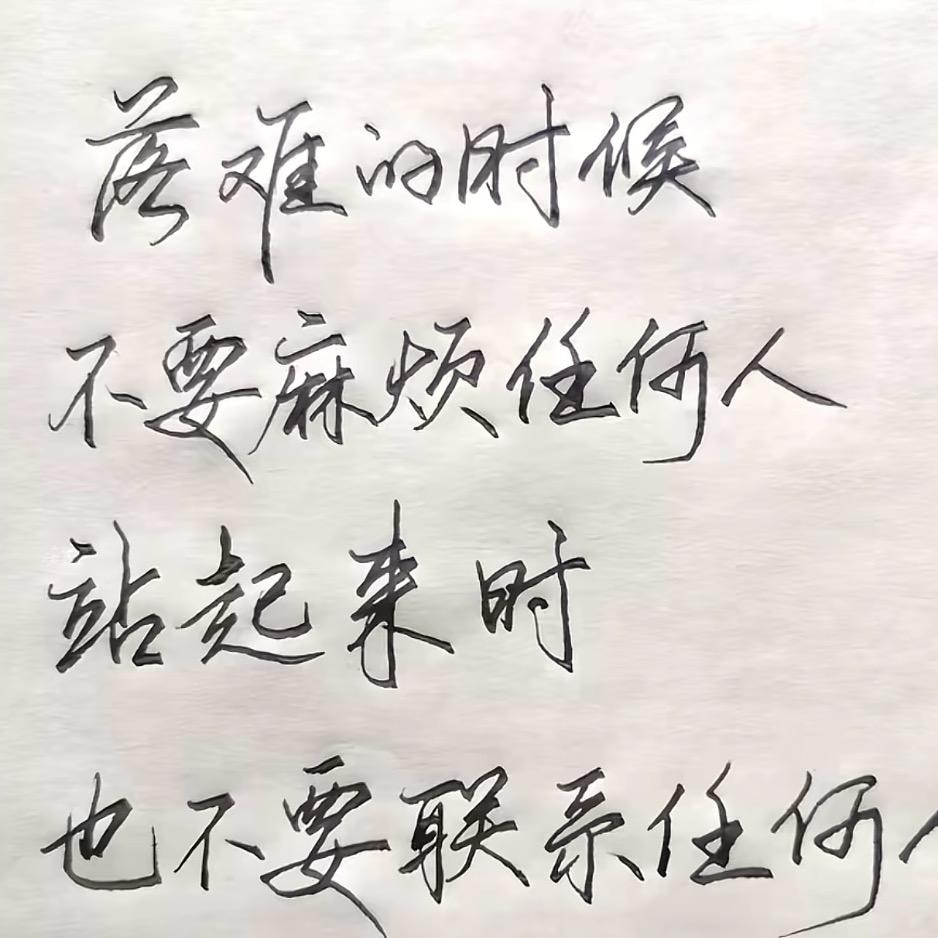 落难的时候
不要麻烦任何人
站起来时
也不要联系任何人